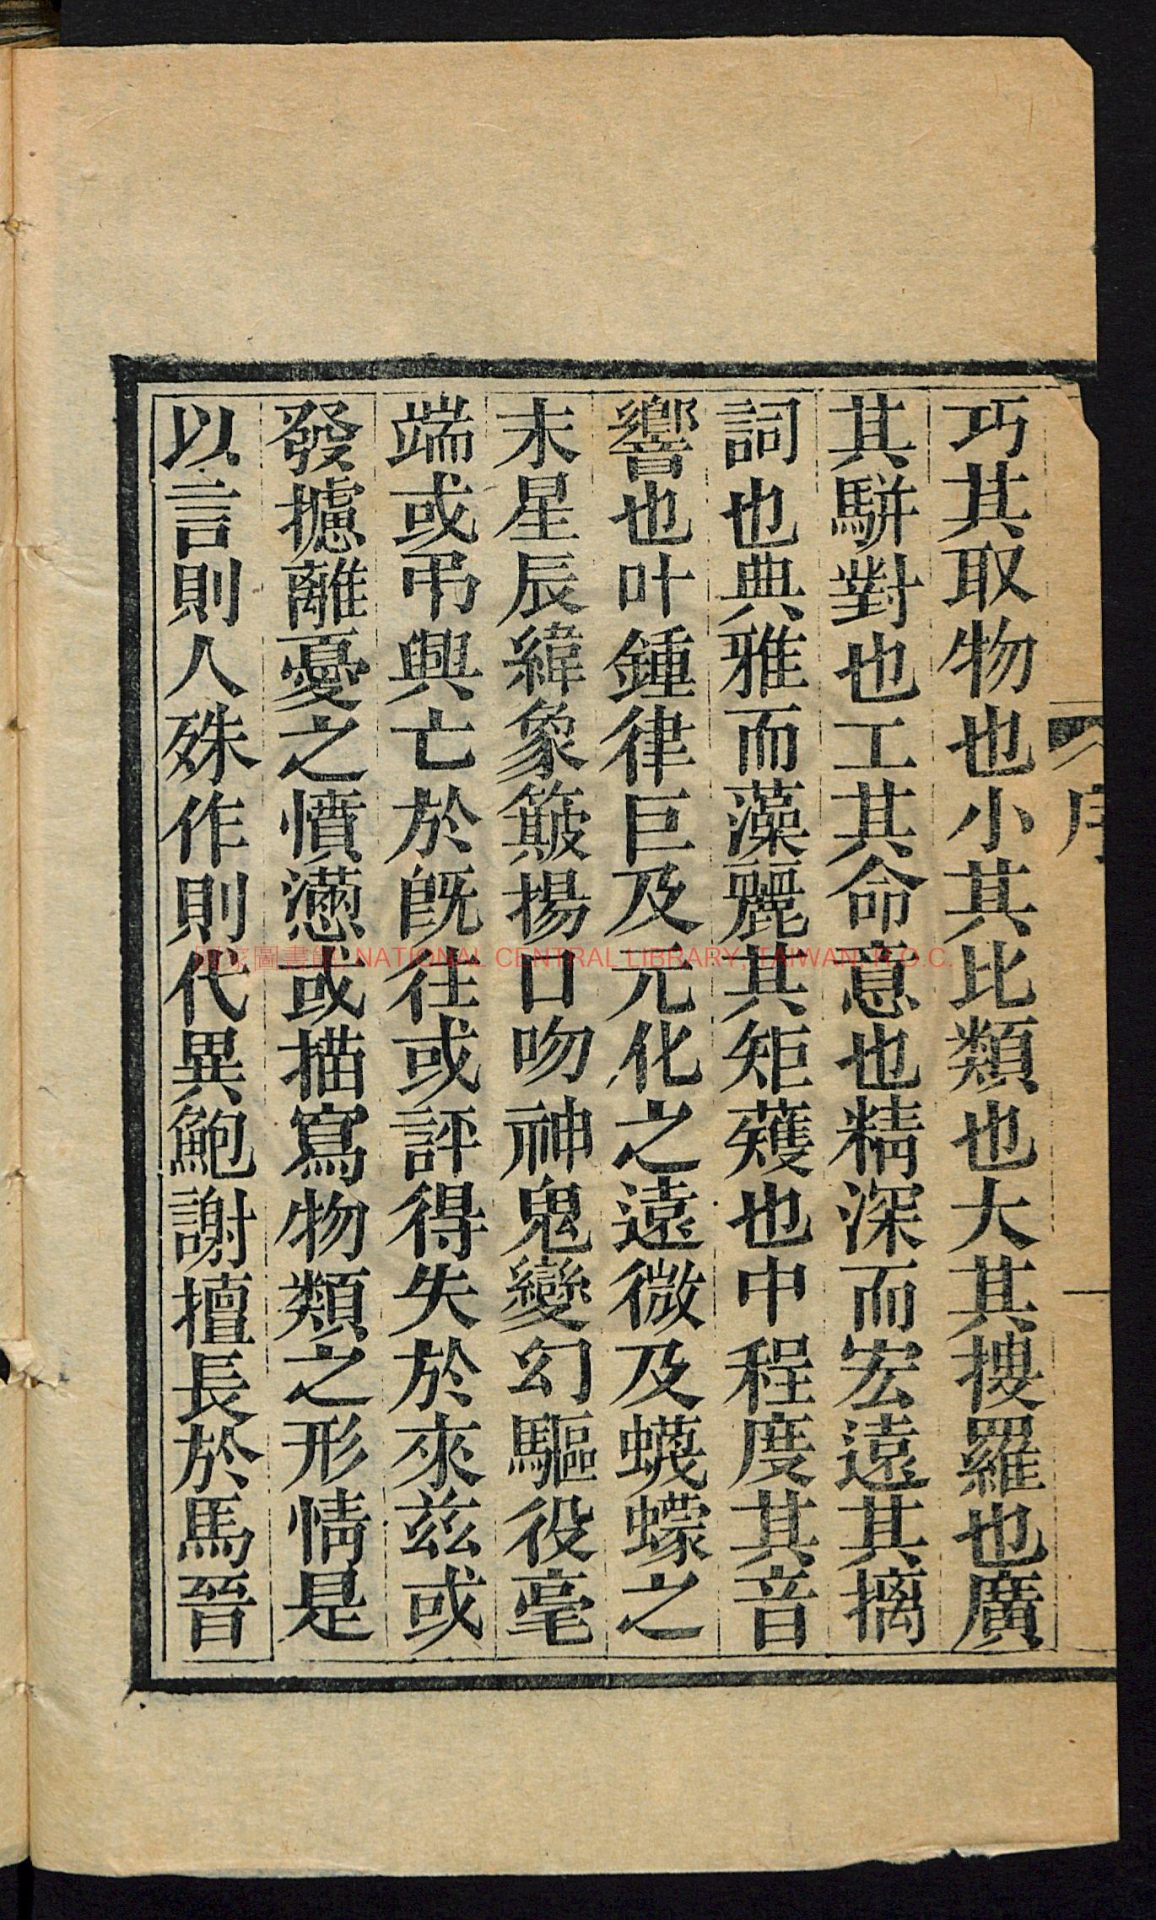 序
一
巧其取物也小其比類也大其摟羅也廣
其駢對也工其命意也精深而宏遠其摛
詞也典雅而藻麗其矩矱也中程度其音
響也叶鍾律巨及元化之遠微及蠛蠓之
末星辰緯象簸揚口吻神鬼變幻驅役毫
端或弔興亡於旣往或評得失於來兹或
發攄離憂之憤懣或描寫物類之形情是
以言則人殊作則代異鮑謝擅長於馬晉
國家圖書館 NATIONAL CENTRAL LIBRARY, TAIWAN, R.O.C.